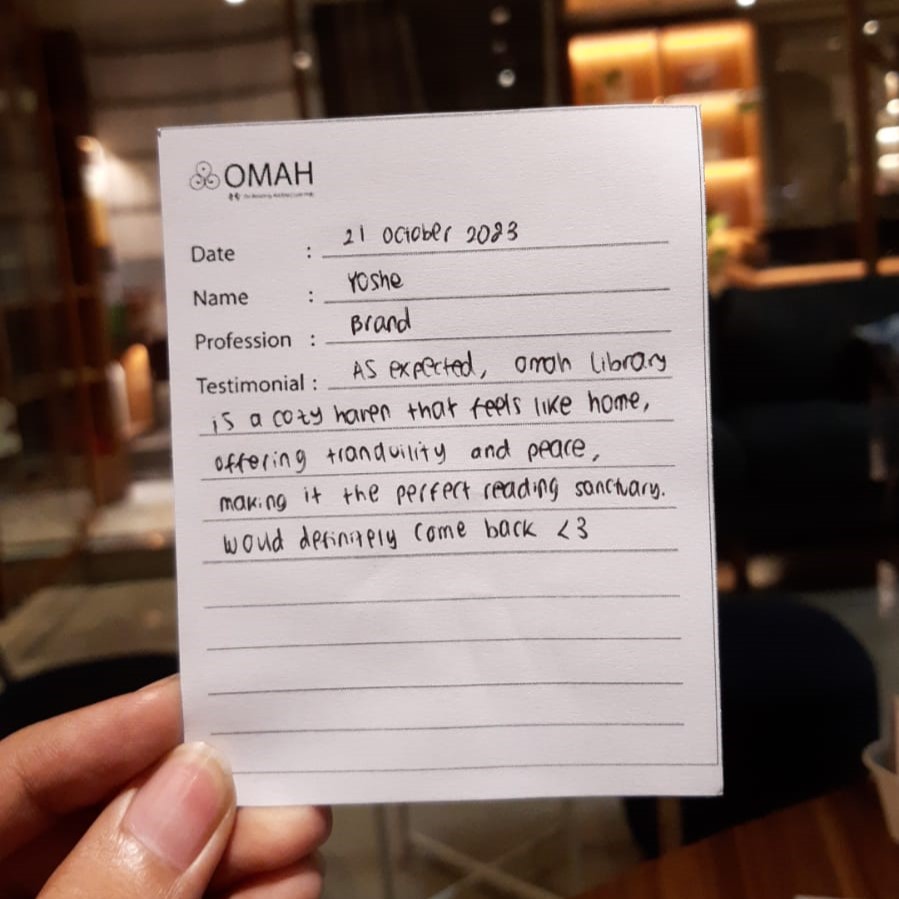 OMAH
Date : 21 October 2023
Name : Yoshe
Profession : Brand
Testimonial : As expected, omah library
is a cozy haven that feels like home,
offering tranquility and peace,
making it the perfect reading sanctuary.
Would definitely come back <3